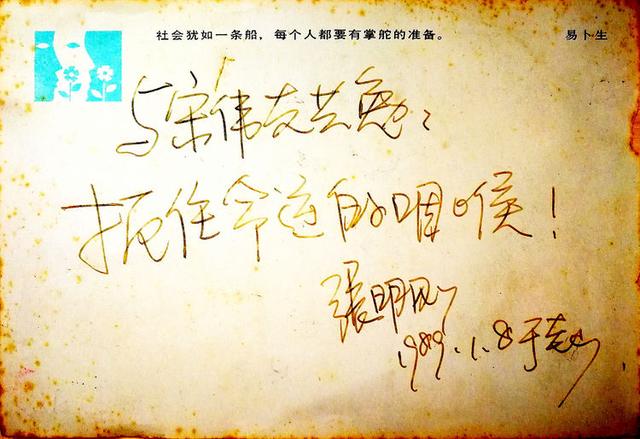 社会犹如一条船，每个人都要有掌舵的准备。 易卜生
与宋伟友共勉：
扼住命运的咽喉！
張明
1989.1.8于